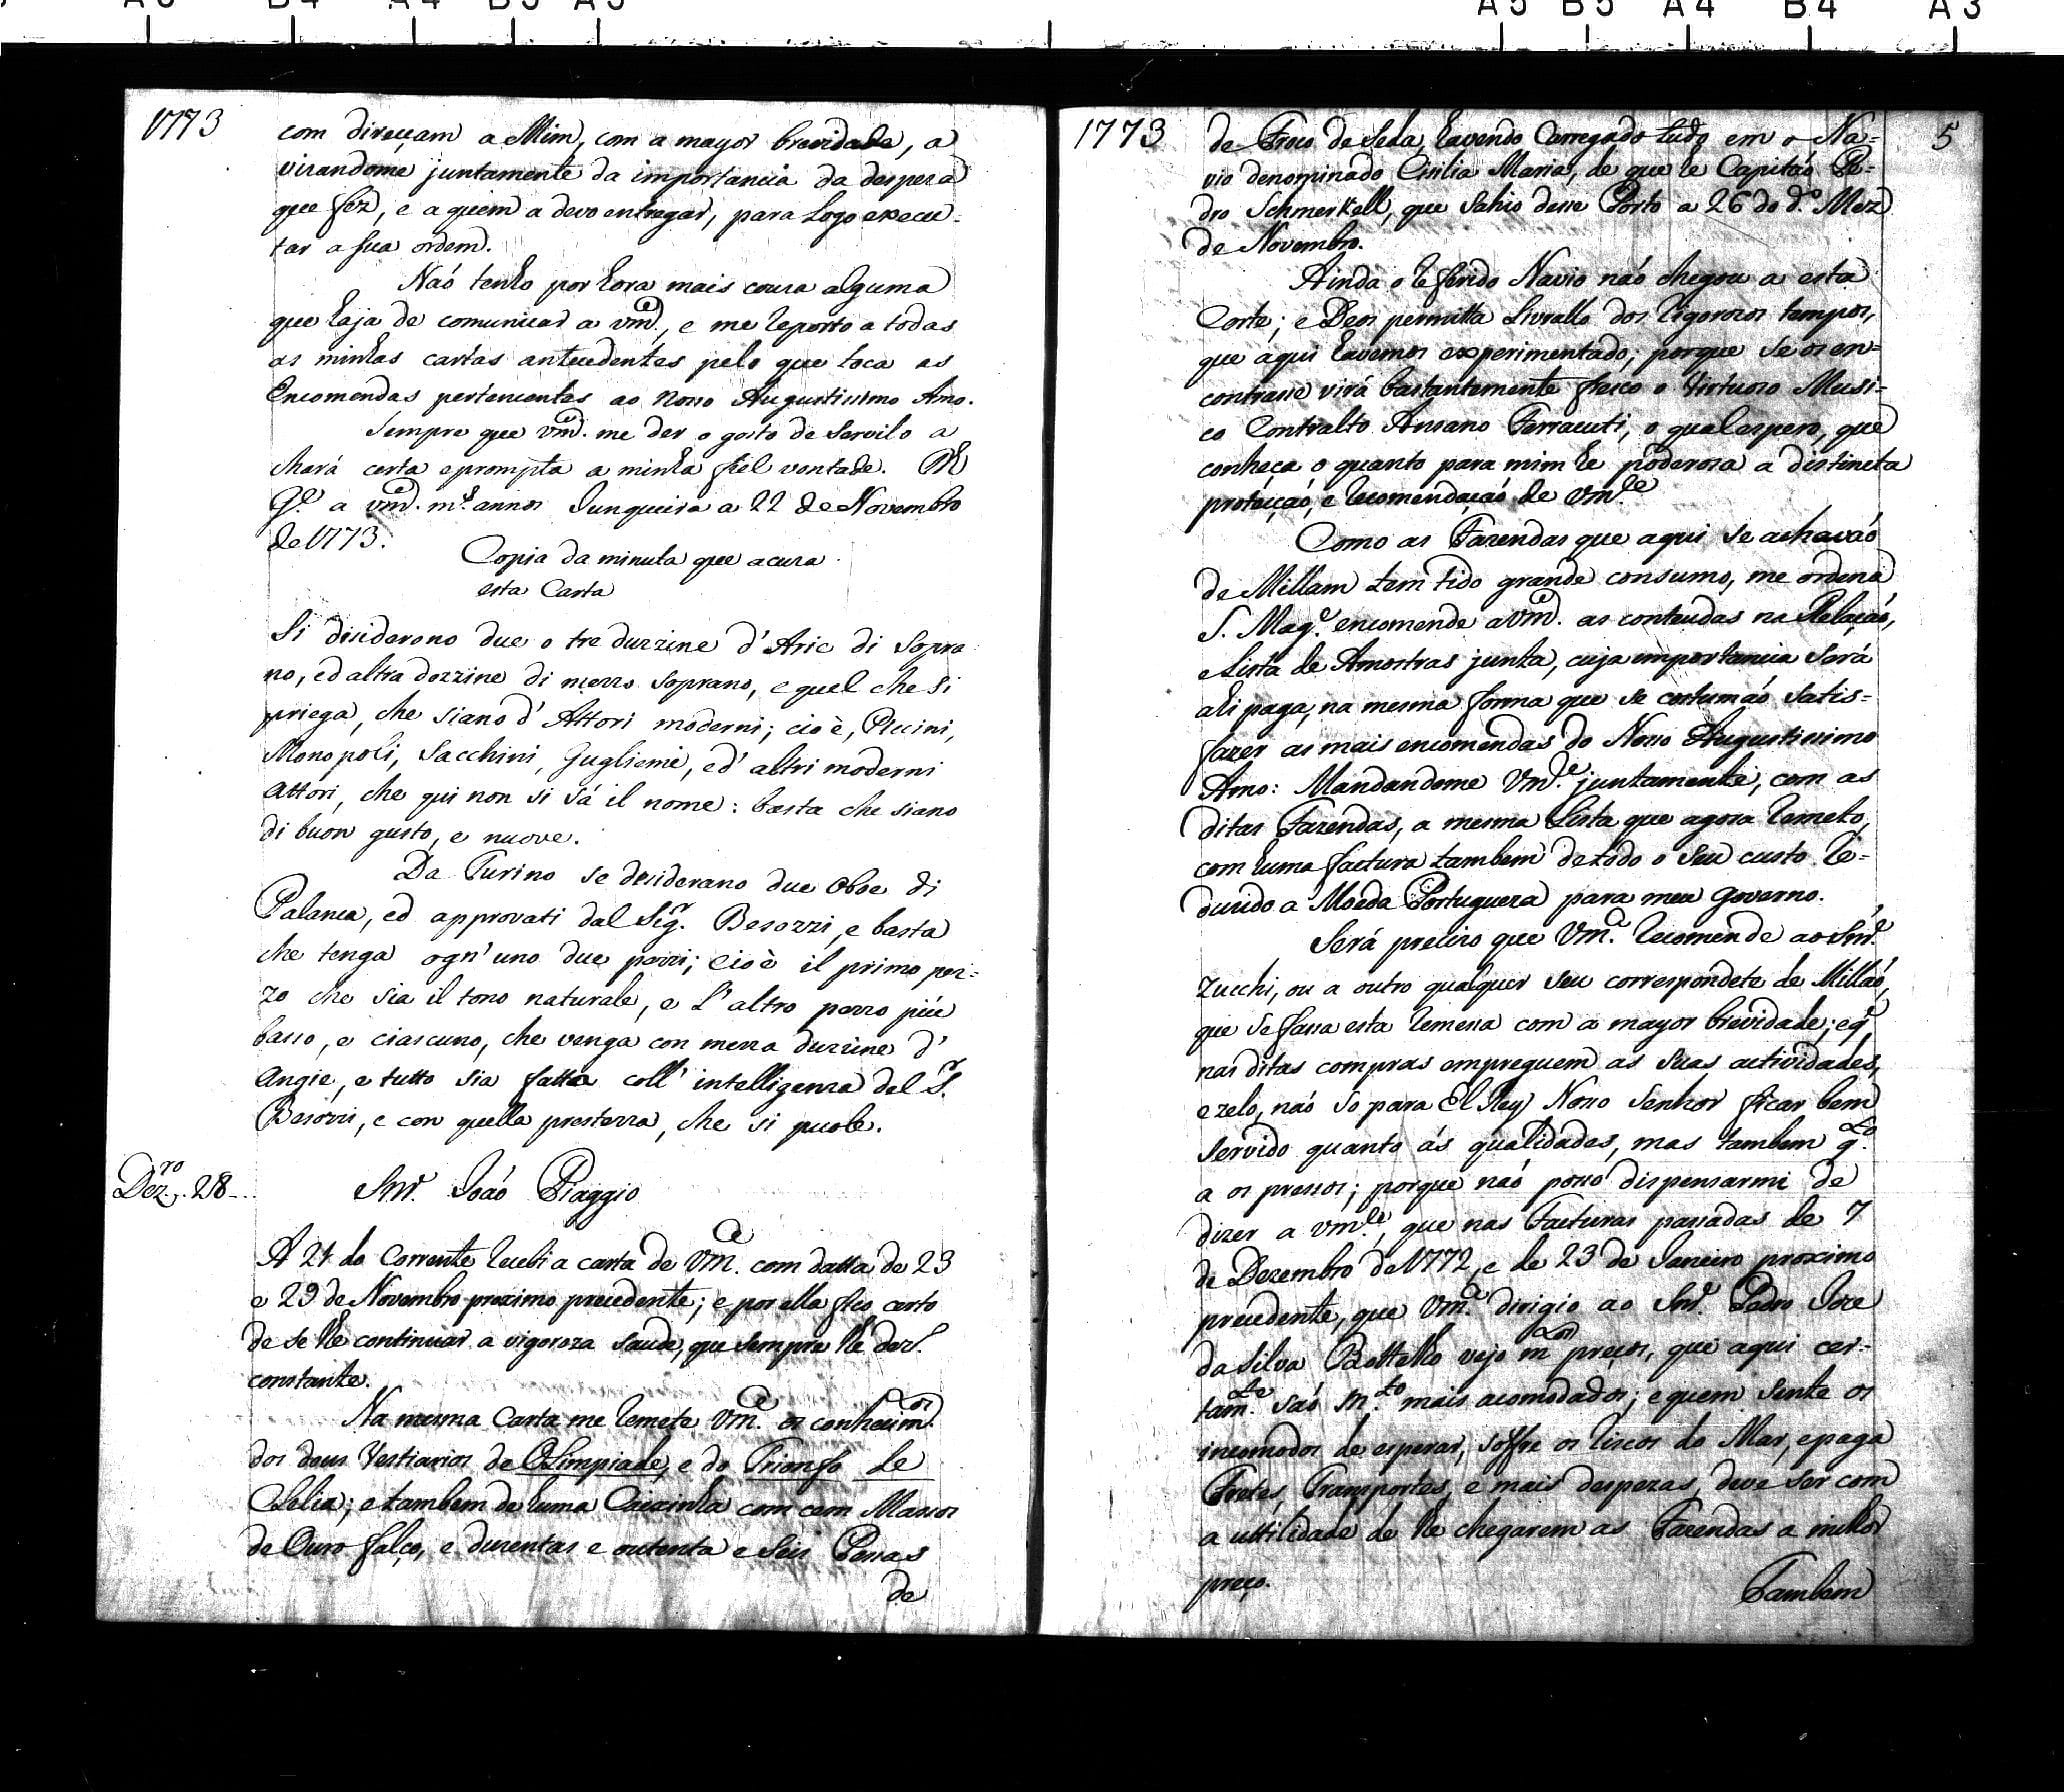 A5 B5 A4 B4 A3
1773
com direcçam a Mim, com a mayor brevidade, a
vizandome juntamente da importancia da despeza
que fez, e a quem a devo entregar, para logo execu-
tar a sua ordem.
Naó tenho por hora mais couza alguma
que haja de comunicar a vmce., e me reporto a todas
as minhas cartas antecedentes pelo que toca as
Encomendas pertencentes ao Nosso Augustissimo Amo.
Sempre que vmce. me der o gosto de Servilo a
chará certa e prompta a minha fiel vontade. Ds
Gde. a vmce. ms. annos Junqueira a 22 de Novembro
de 1773.
Copia da minuta que acuza
esta Carta
Si desiderono due o tre duzzine d' Arie di Sopra
no, ed altra dozzine di mezzo soprano, e quel che si
priega, che siano d' Attori moderni; cioè, Piccini,
Monopoli, Sacchini, Guglielmi, ed' altri moderni
attori, che qui non si sá il nome: basta che siano
di buon gusto, e nuove.
Da Turino se desiderano due Oboe di
Palanca, ed approvati dal Sigr. Besozzi, e basta
che tenga ogn' uno due pezzi; cioè il primo pez-
zo che sia il tono naturale, e l' altro pezzo piú
basso, e ciascuno, che venga con mezza duzzine d'
Angie, e tutto sia fatto coll' intelligenza del Sr.
Besozzi, e con quella prestezza, che si puole.
Dezro. 28
Snr. Joáo Piaggio
A 24 do Corrente recebi a carta de Vmce. com datta de 23
e 29 de Novembro proximo precedente; e por ella fico certo
de se lhe continuar a vigoroza saude, que sempre lhe dezo.
constante.
Na mesma Carta me remete Vmce. os conhecimtos.
dos dous Vestiarios de Olimpiade, e do Trionfo de
Clelia; e tambem de huma Caixinha com cem Massos
de Ouro falço, e duzentas e outenta e Seis Pessas
de
1773
5
de Froco de Seda, havendo Carregado tudo em o Na-
vio denominado Cicilia Maria, de que he Capitáo Pe-
dro Schmerkell, que Sahio desse Porto a 26 do do. Mez
de Novembro.
Ainda o referido Navio náo chegou a esta
Corte; e Deos permitta Livrallo dos rigorosos tempos,
que aqui havemos experimentado; porque se os en-
contrasse virá bastantemente fresco o Virtuozo Musi-
co Contralto Ansano Ferracuti, o qual espero, que
conheça o quanto para mim he poderoza a distincta
proteiçáo, e recomendaçáo de Vmce
Como as Fazendas que aqui se achaváo
de Millam tem tido grande consumo, me ordena
S. Mage. encomende a Vmce. as conteudas na Relaçáo,
e Lista de Amostras junta, cuja importancia será
ahi paga, na mesma forma que se costumáo satis-
fazer as mais encomendas do Nosso Augustissimo
Amo: Mandandome Vmce. juntamente, com as
ditas Fazendas, a mesma Lista que agora remeto,
com huma factura tambem de todo o seu custo re-
duzido a Moeda Portugueza para meu Governo.
Será precizo que Vmce. recomende ao Snr.
Zucchi, ou a outro qualquer seu correspondete de Milláo,
que se fassa esta remessa com a mayor brevidade; e q.
nas ditas compras empreguem as suas actividades,
e zelo, náo so para El Rey Nosso Senhor ficar bem
servido quanto ás qualidades, mas tambem qto.
a os pressos; porque náo posso dispensarmi de
dizer a vmce., que nas Facturas passadas de 7
de Dezembro de 1772, e de 23 de Janeiro proximo
precedente, que Vmce. dirigio ao Snr. Pedro Joze
da Silva Bottelho vejo mtos preços, que aqui cer-
tamte. sáo mto. mais acomodados; e quem sente os
incomodos de esperar, soffre os riscos do Mar, e paga
Fretes, Transportes, e mais despezas, deve ser com
a uttilidade de lhe chegarem as Fazendas a milhor
preço.
Tambem